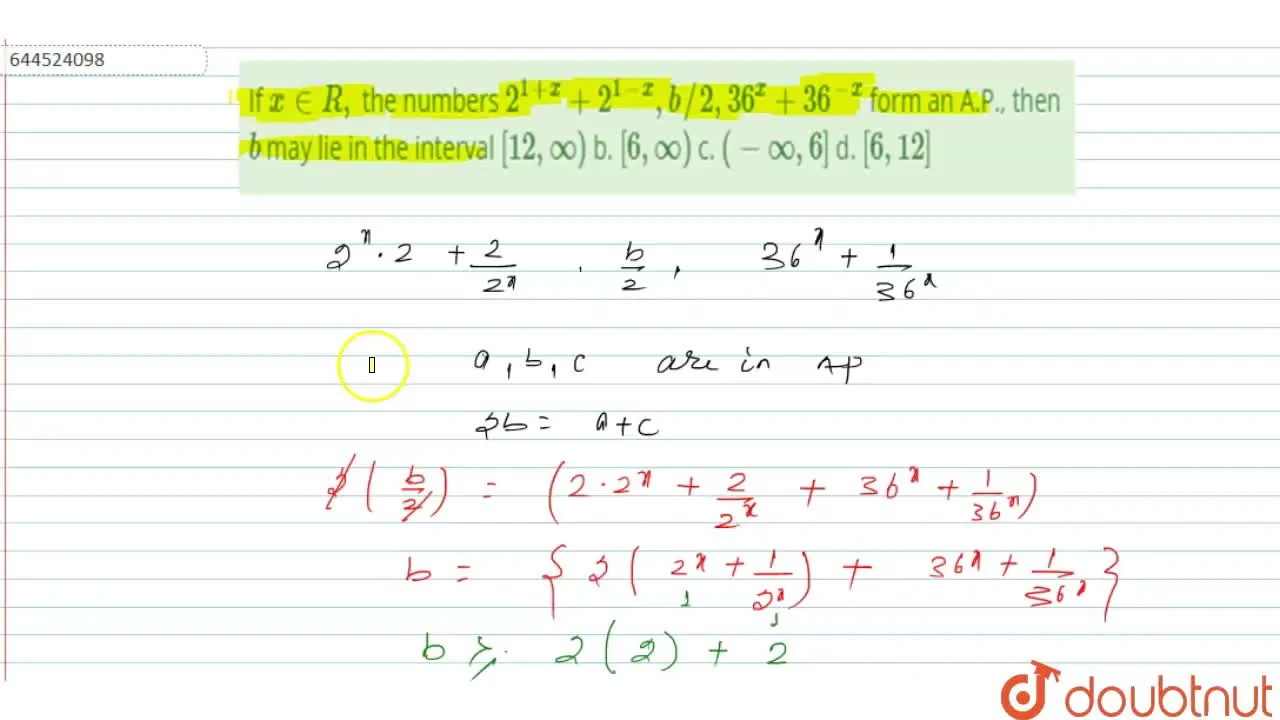 644524098
If x ∈ R, the numbers 2^{1+x} + 2^{1−x}, b/2, 36^x + 36^{−x} form an A.P., then
b may lie in the interval [12, ∞) b. [6, ∞) c. (−∞, 6] d. [6, 12]
2^x · 2 + 2/2^x , b/2 , 36^x + 1/36^x
a, b, c are in AP
2b = a + c
2(b/2) = (2 · 2^x + 2/2^x + 36^x + 1/36^x)
b = {2(2^x + 1/2^x) + 36^x + 1/36^x}
b ≥ 2(2) + 2
doubtnut